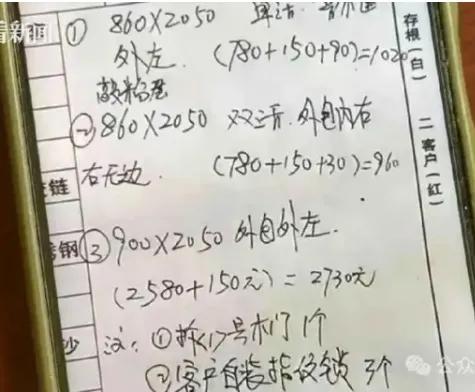 看新闻
① 860×2050 单活
外左. (780+150+90)=1020
② 860×2050 双活. 外包内右
右无边. (780+150+30)=960
③ 900×2050 外包外左.
(2580+150元) = 2730元
注: ① 拆门号木门 1个
② 客户自装指纹锁 3个
存根(白)
二客户(红)
链
钢
沙
公众